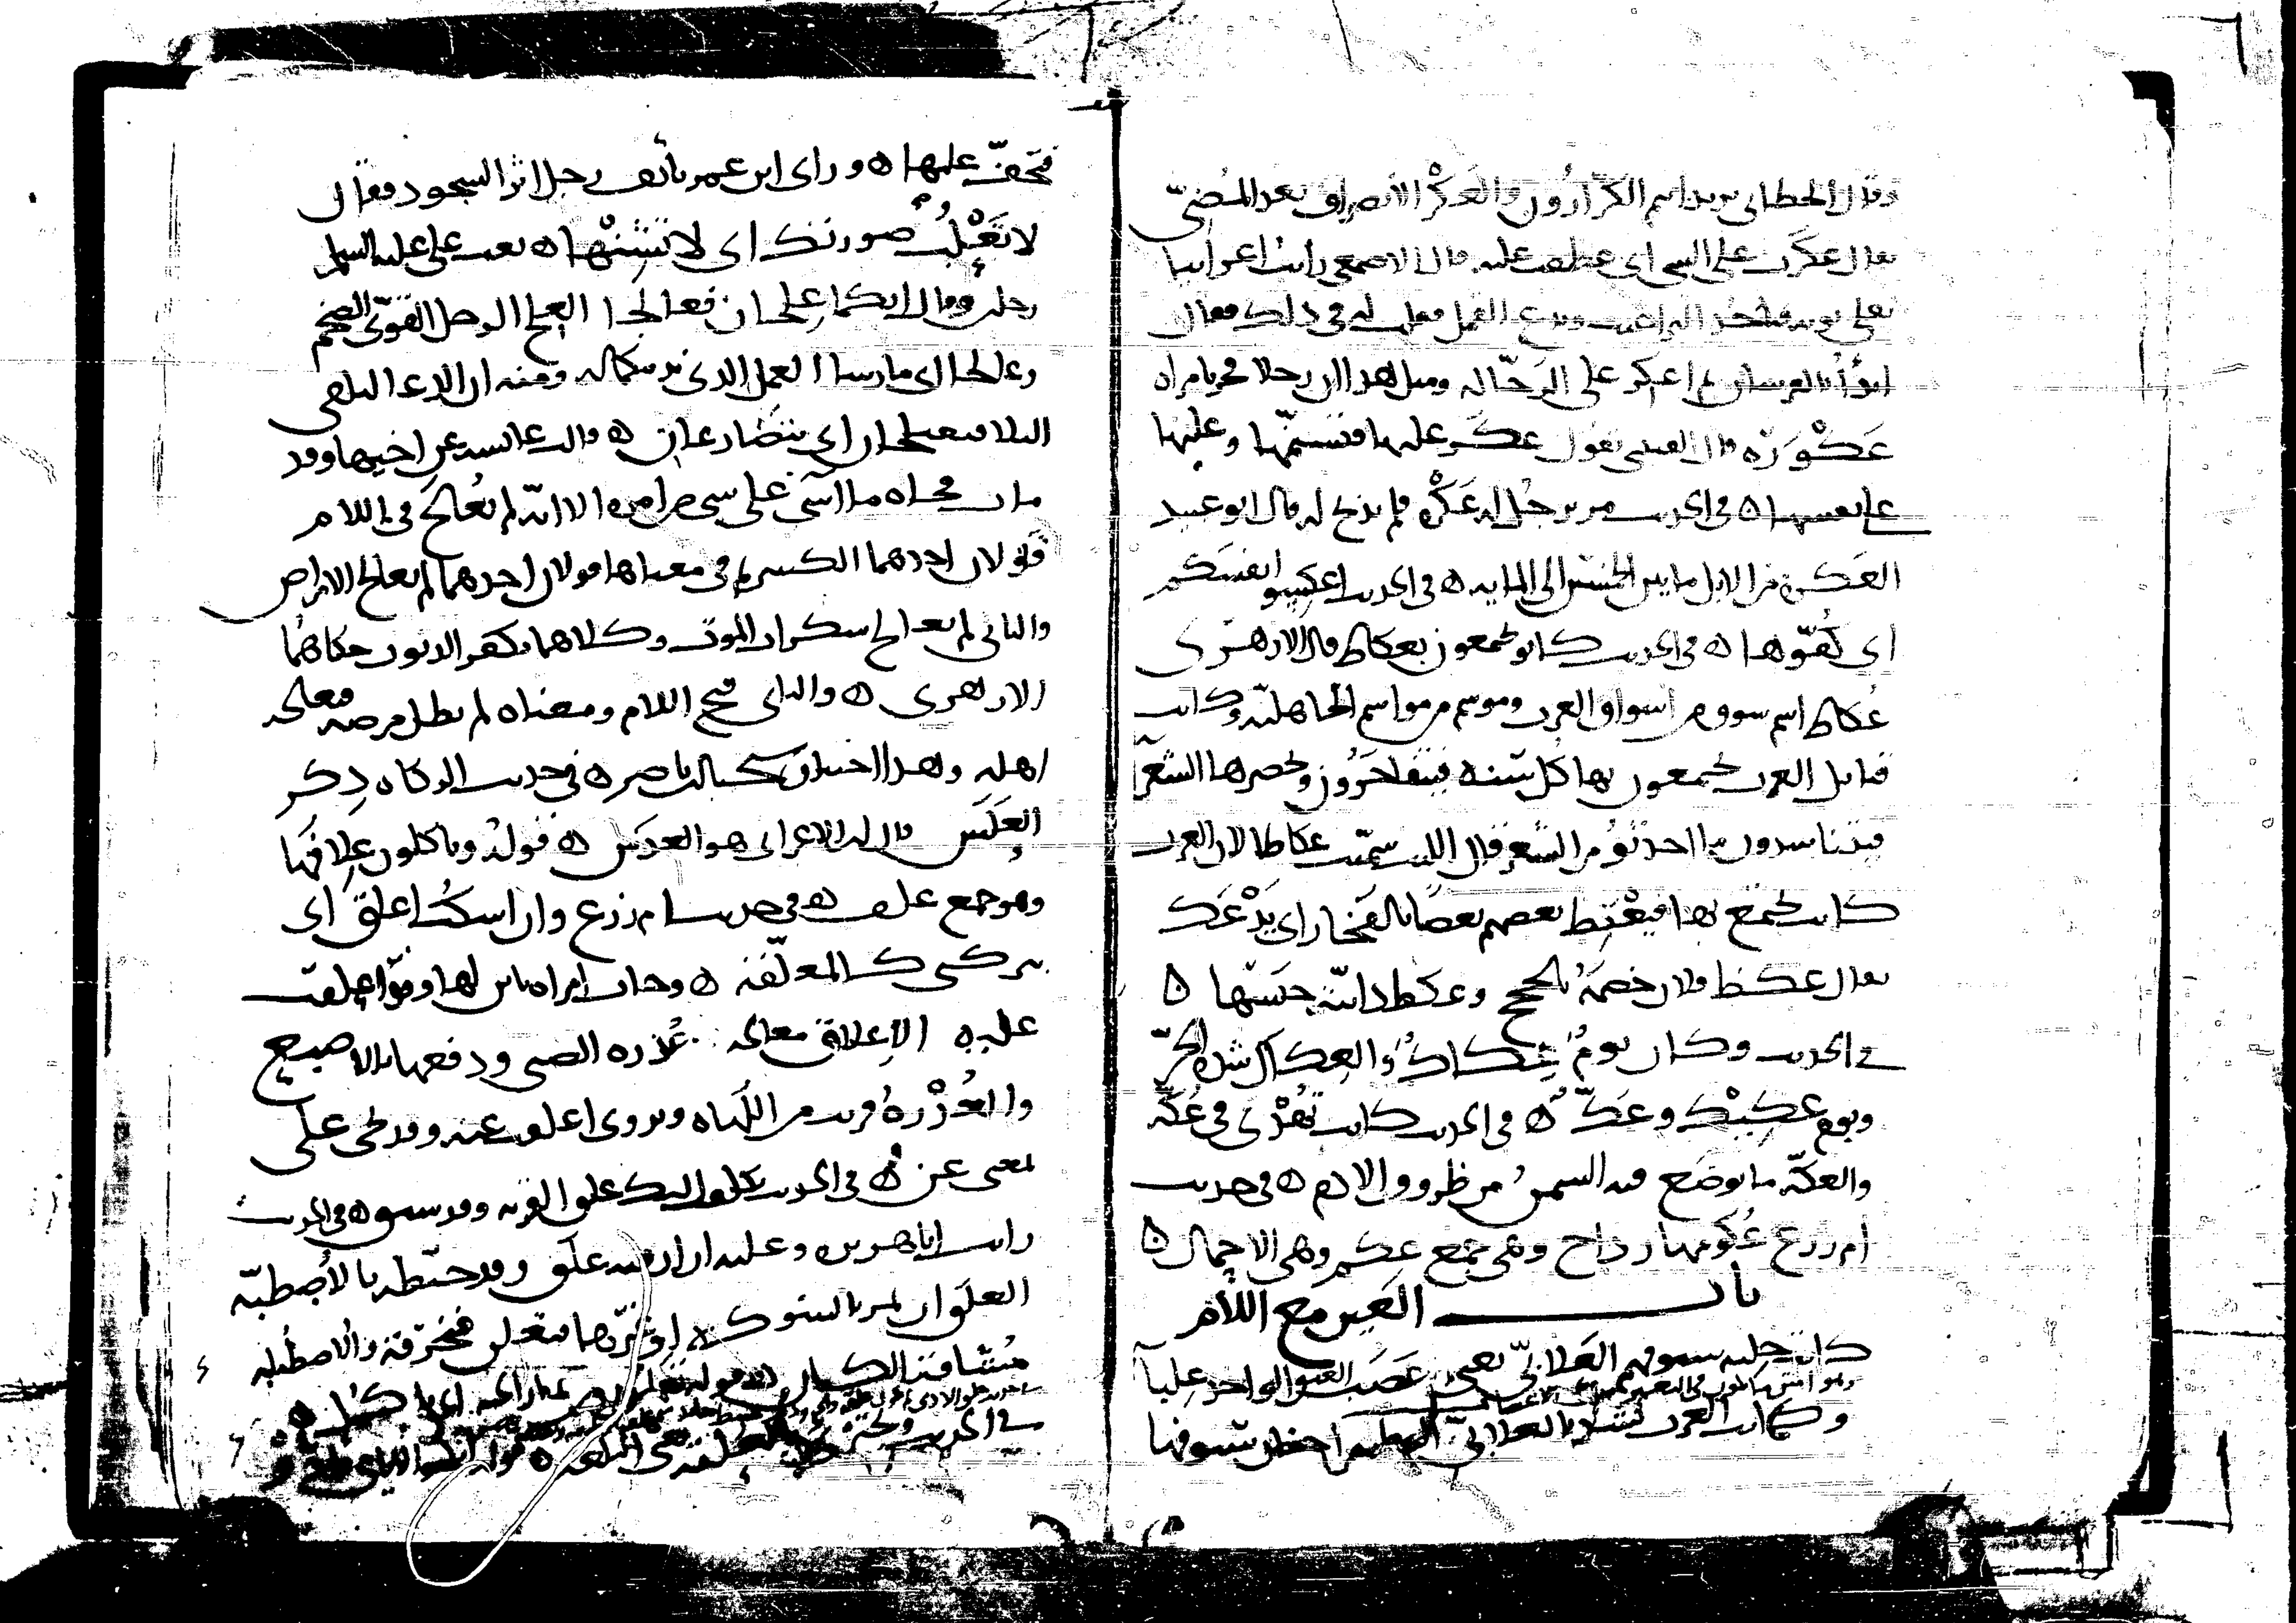 وقال الخطابي يريد انتم الكرّارُون والعَكْر الانصراف بعد المُضيّ
يقال عكرت على الشي اي عطفت عليه قال الاصمعي رأيت اعرابيا
يفلي ثوبه فيقتل البراغيث ويدع القمل فقلت له في ذلك فقال
ابدأ بالفرسان ثم اعكر على الرَّجّالة ومثل هذا ان رجلا فجر بامراه
عَكْوَرَة قال القتيبي يقول عكر عليها فتسنّمها وغلبها
على نفسها ه في الحديث مر برجل له عَكَرة فلم يذبح له قال ابو عبيد
العَكَرة من الابل ما بين الخمسين الى المايه ه في الحديث اعكسوا انفسكم
اي كُفّوها ه في الحديث كانوا يجتمعون بعكاظ قال الازهري
عُكاظ اسم سوق من اسواق العرب وموسم من مواسم الجاهلية وكانت
قبايل العرب يجتمعون بها كل سنة فيتفاخَرُون ويحضرها الشعرا
فيتناشدون ما احدثوُ من الشعر قال الليث سمّيت عكاظا لان العرب
كانت تجتمع بها فيَعْكِظ بعضهم بعضًا بالفَخار اي يَدْعَك
يقال عكظ فلان خصمَهُ بالحجج وعكظ دابّتهُ حبَسَها ه
في الحديث وكان يومُ عِكاكٍ والعِكاك شدة الحَرّ
ويوم عَكيك وعَكٌّ ه في الحديث كانت تُهْدى في عُكّة
والعكّة ما يوضع فيه السمن من ظروف الادم ه في حديث
ام زرع عُكُومها رداح وهي جمع عكم وهي الاحمال ه
باب العَين مع اللام
كانت حلية سيوفهم العَلابيّ يعني عَصَبَ العُنُق الواحد عِلباً
وكانت العرب تشد بالعلابيّ الرطبة اجفان سيوفها
فتَجفّ عليها ه وراى ابن عمر بأنف رجل اثر السجود فقال
لا تَعْلُبْ صورتك اي لا تَشِنْها ه بعث علي عليه السلم
رجلين وقال انكما عِلجان فعالجا العِلج الرجل القويّ الضخم
وعالجا اي مارسا العمل الذي ندبتكما له ومنه ان الدعا ليلقى
البلا فيعتلجان اي يتصارعان ه قالت عائشة عن اخيها وقد
مات فجاه ما آسَى على شي من امره الا انه لم يُعالج في اللام
قولان احدهما الكسر ثم في معناها قولان احدهما لم يعالج الامراض
والثاني لم يعالج سكرات الموت وكلاهما يكفر الذنوب حكاهُما
الازهري ه والثاني فتح اللام ومعناه لم يطل مرضه فيعالجه
اهله وهذا اختيار شيخنا ابن ناصر ه في حديث الزكاه ذِكر
العَلَس قال ابن الاعرابي هو العدَس ه قوله وياكلون عِلافها
وهو جمع علف ه في حديث ام زرع وان اسكت اعلق اي
يتركني كالمعلّقة ه وجات امراه بابن لها وقد اعلقت
عليه الاعلاق معالجة عُذرة الصبي ودفعها بالاصبع
والعُذْرة قريب من اللَّهاه ويروى اعلقت عنه وقد تجي على
بمعنى عن ه في الحديث تكلفوا اليك علق القربة وقد سبق ه في الحديث
رايت ابا هريره وعليه ازار فيه علَق وقد خيّطه بالأُصطُبّة
العلَق ان يمر بالشوك او غيرها فتعلق فتخرقه والاصطُبه
مُشاقة الكتان
في الحديث